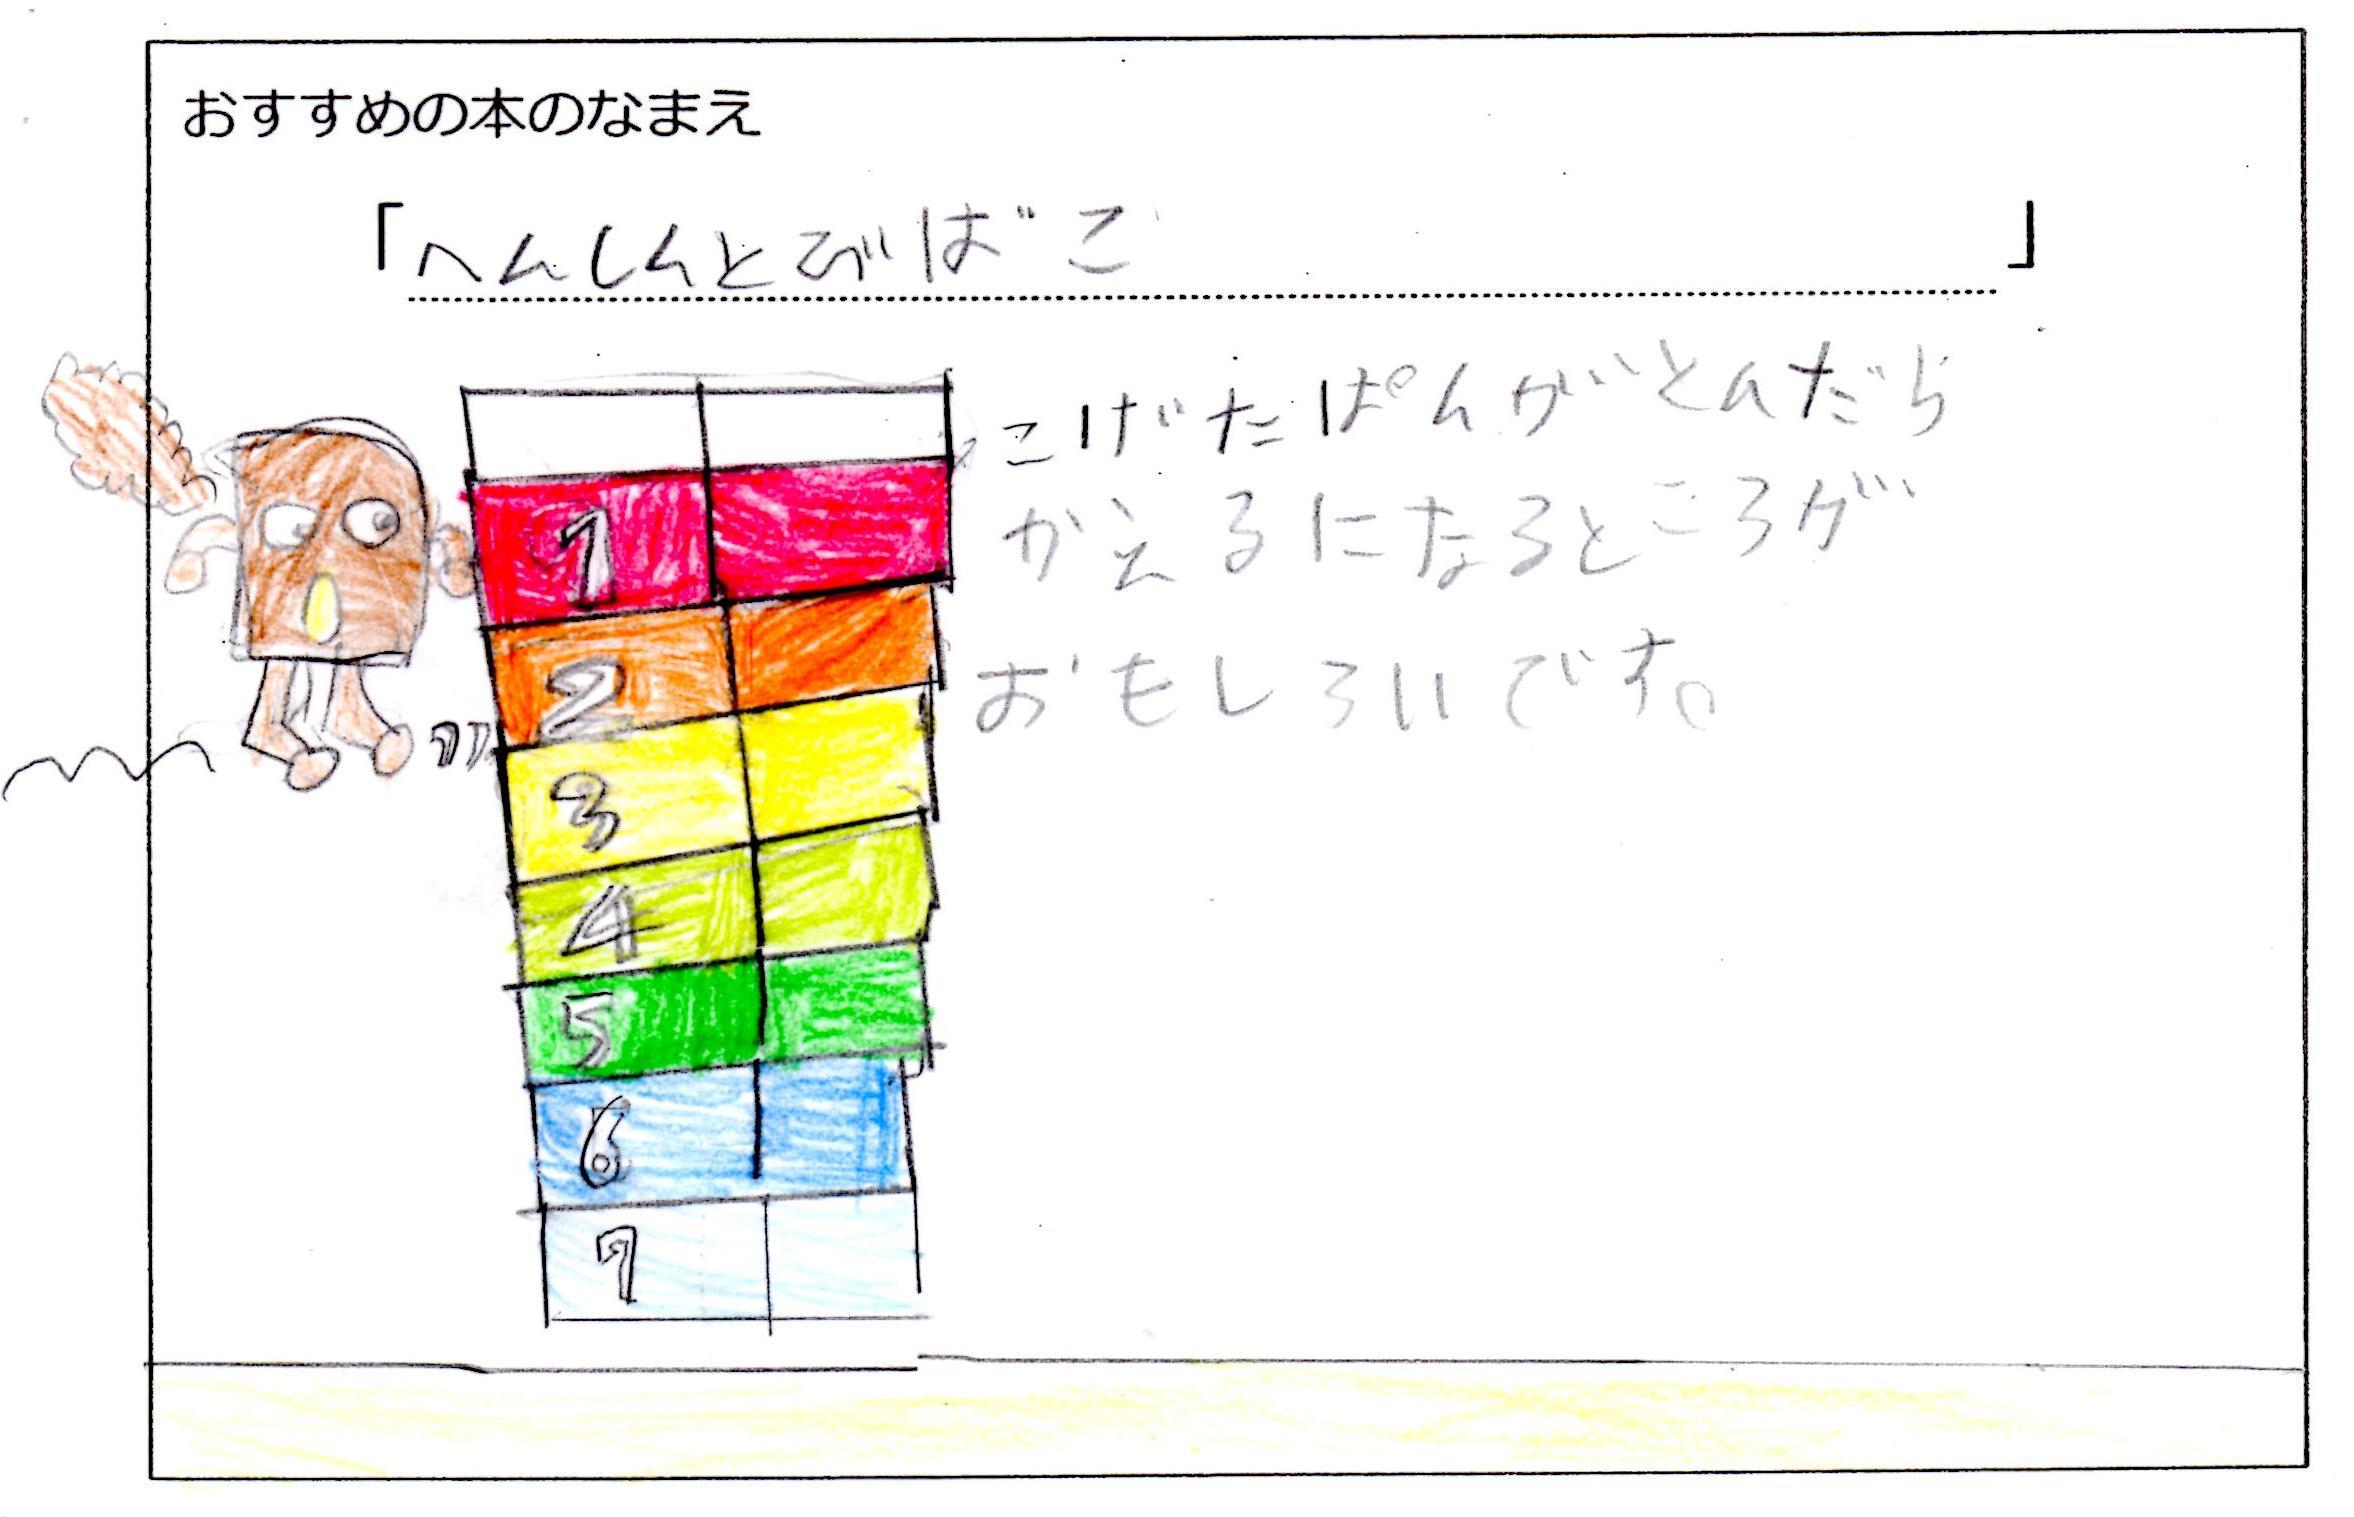 おすすめの本のなまえ
「へんしんとびばこ」
こげたぱんがとんだら
かえるになるところが
おもしろいです。
1
2
3
4
5
6
7